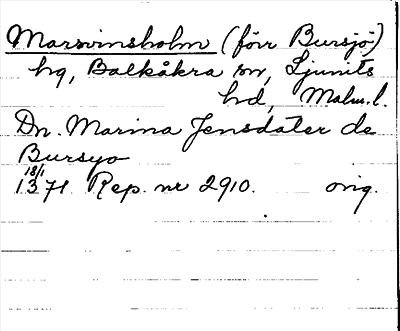 Marsvinsholm (förr Bursjö)
hg, Balkåkra sn, Ljunits
hd, Malm. l.
Dn. Marina Jensdater de
Bursyo
18/1
1371 Rep. nr 2910. orig.